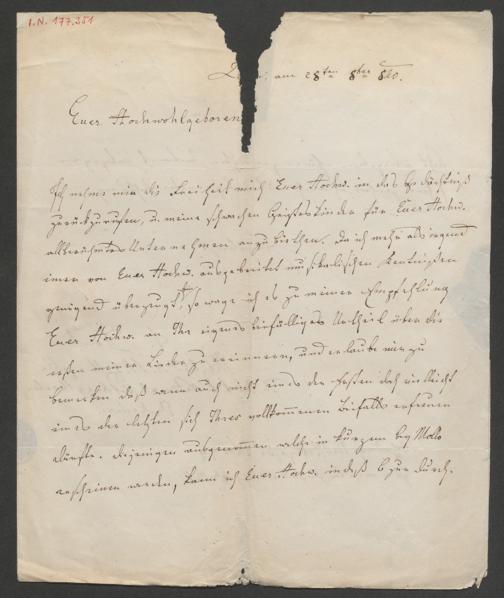 I.N. 177.351
am 28ten 8ber 820.
Euer Hochwohlgeboren
Ich nehme mir die Freiheit mich Euer Hochw. in das Gedächtniß
zurückzurufen, u. meine schwachen Geisteskinder für Euer Hochw.
allberühmtes Unternehmen anzubiethen. Da ich mehr als irgend
jemer von Euer Hochw. ausgebreiteten musikalischen Kentnißen
genügend überzeugt, so wage ich es zu meiner Empfehlung
Euer Hochw. an Ihr eigenes beifälliges Urtheil über die
ersten meiner Lieder zu erinnern, und erlaube mir zu
bemerken daß wenn auch nicht eines der ersten doch vielleicht
eines der letzten sich Ihres vollkommenen Beifalls erfreuen
dürfte. Diejenigen ausgenommen welche in kurzem bey Mollo
erscheinen werden, kann ich Euer Hochw. indeß 6 zur Durch-